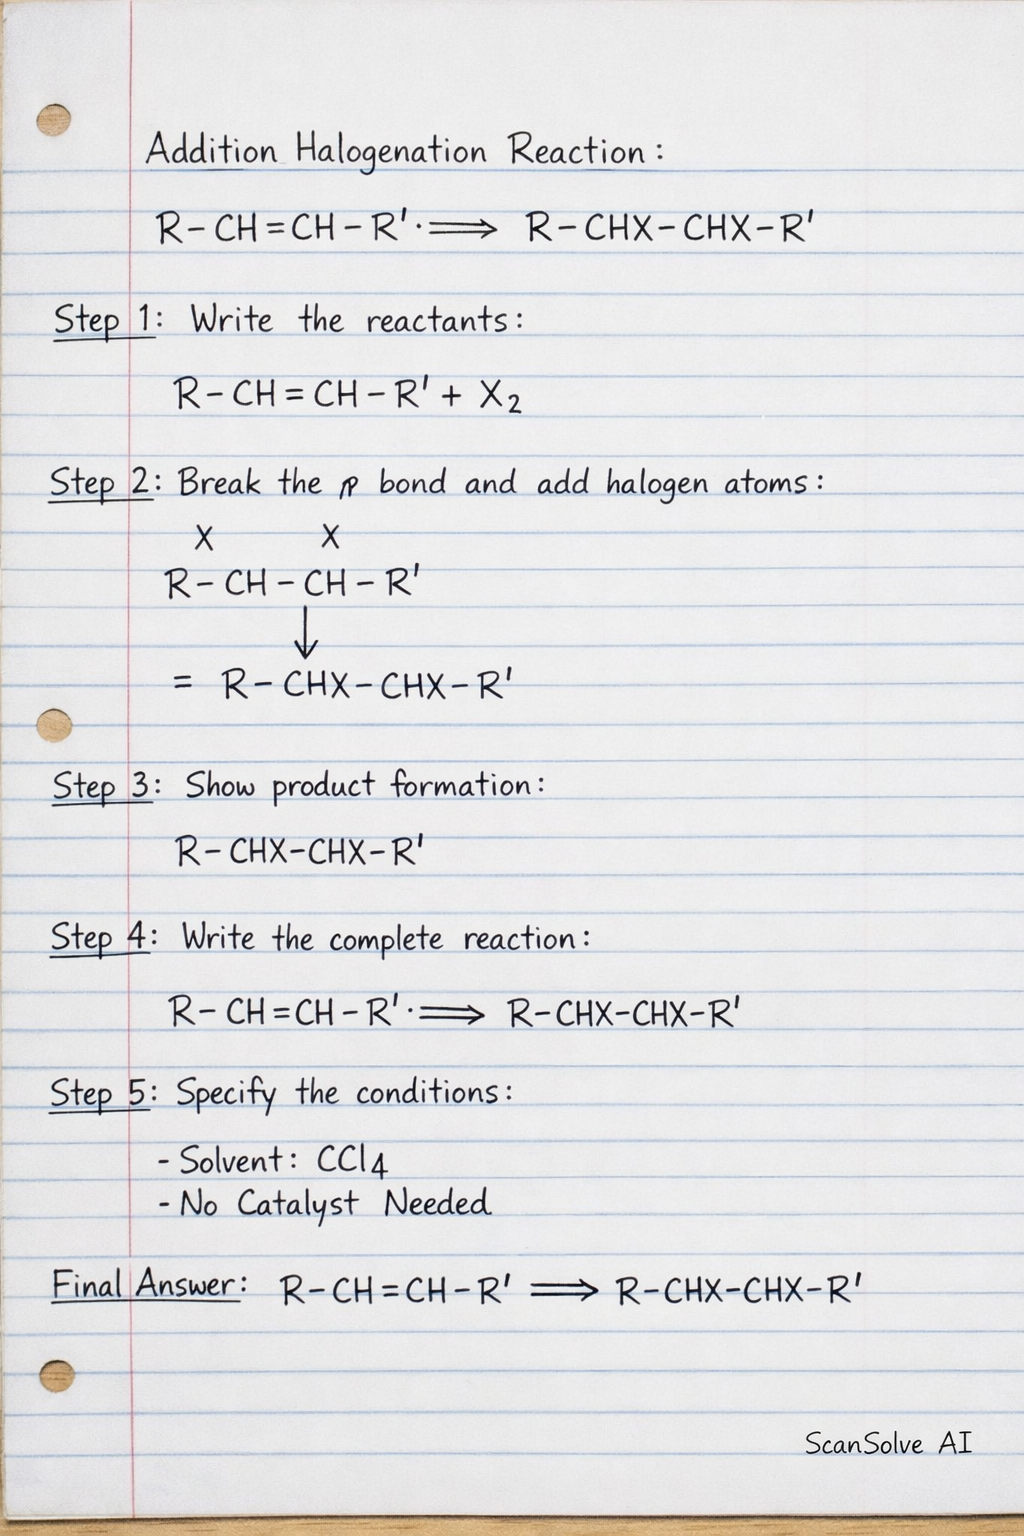 Addition Halogenation Reaction:
R-CH=CH-R'·⟹ R-CHX-CHX-R'
Step 1: Write the reactants:
R-CH=CH-R' + X₂
Step 2: Break the bond and add halogen atoms:
X X
R-CH-CH-R'
↓
= R-CHX-CHX-R'
Step 3: Show product formation:
R-CHX-CHX-R'
Step 4: Write the complete reaction:
R-CH=CH-R'·⟹ R-CHX-CHX-R'
Step 5: Specify the conditions:
- Solvent: CCl4
- No Catalyst Needed
Final Answer: R-CH=CH-R' ⟹ R-CHX-CHX-R'
ScanSolve AI